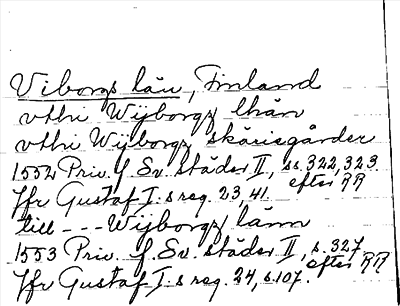 Viborgs län, Finland
vthi Wijborgz lhän
vthi Wijborgz skärisgårder
1552 Priv. f. Sv. städer II, ss. 322, 323
efter RR
Jfr Gustaf I:s reg. 23, 41.
till --- Wijborgz länn
1553 Priv. f. Sv. städer II, s. 327
efter RR
Jfr Gustaf I:s reg. 24, s. 107.